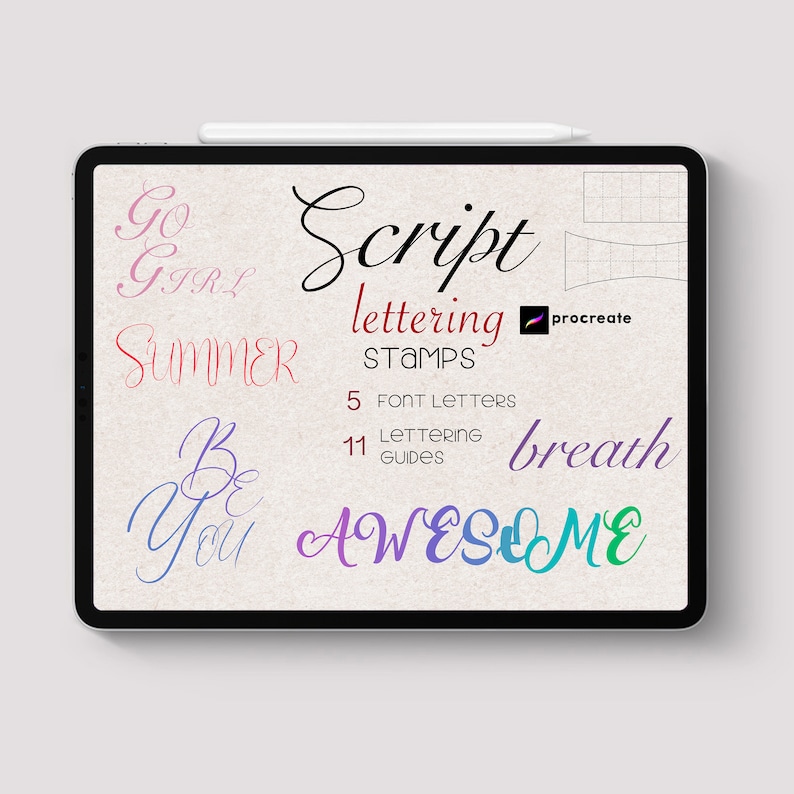 Go
Girl
Script
lettering
procreate
stamps
SUMMER
5 Font Letters
11 Lettering
Guides
breath
Be
You
AWESOME